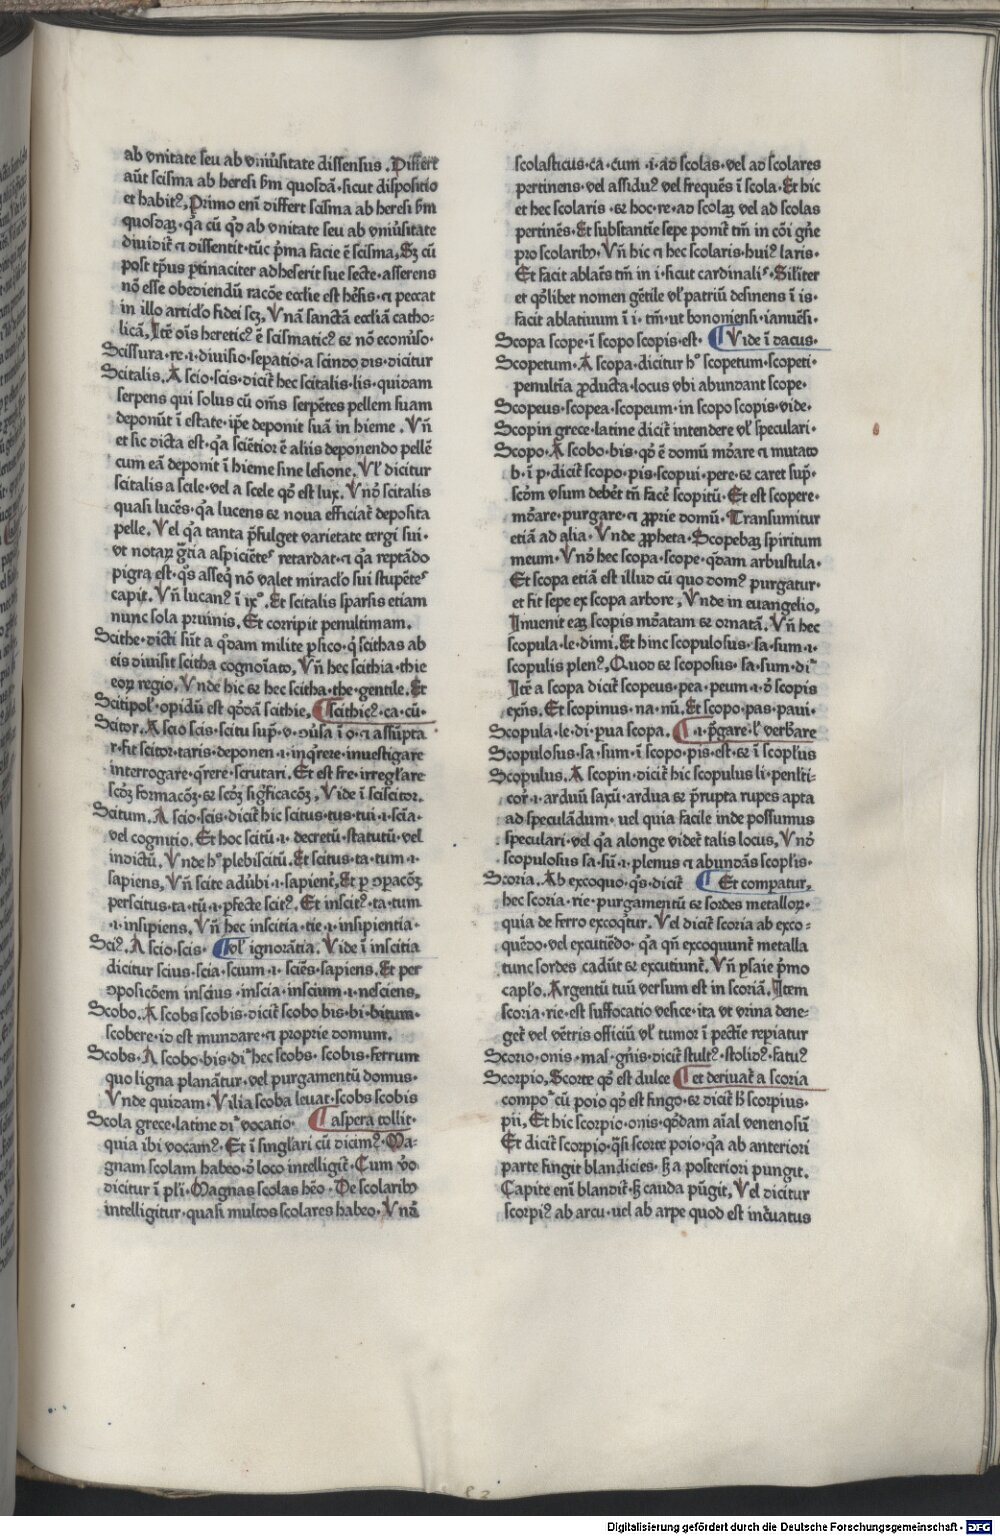 ab vnitate seu ab vniũsitate dissensus . Differt
aũt scisma ab heresi ßm quosdã · sicut dispositio
et habitꝰ, Primo eni͂ differt scisma ab heresi ßm
quosdaꝫ · q̃a cũ qͦd ab vnitate seu ab vniũsitate
diuidit͛ ⁊ dissentit · tũc p͛ma facie ẽ scisma, Sꝫ cũ
post tp̃us ꝑtinaciter adheserit sue secte · asserens
nõ esse obediendũ racõe ecclie est he͛sis · ⁊ peccat
in illo articl̓o fidei scꝫ, Vnã sanctã ecclãi catho-
licã, Itẽ oĩs hereticꝰ ẽ scismaticꝰ sꝫ nõ econũso ·
Scissura · re · i · diuisio · sepatio · a scindo dis · dicitur
Scitalis. A scio · scis · dicit͛ hec scitalis · lis · quidam
serpens qui solus cũ om͂s serpẽtes pellem suam
deponũt ĩ estate · ip̃e deponit suã in hieme . Vñ
et sic dicta est · q̃a sciẽtior ẽ aliis deponendo pellẽ
cum eã deponit ĩ hieme sine lesione, Vl̓ dicitur
scitalis a scile · vel a scele qͦd est lux. Vnͦ scitalis
quasi lucẽs · q̃a lucens sꝫ noua efficiat͛ deposita
pelle. Vel q̃a tanta p̃fulget varietate tergi sui ·
vt notaꝝ gr̃tia aspiciẽteˢ retardat · ⁊ q̃a reptãdo
pigra est · qͦs asseq̃ nõ valet miracl̓o sui stupẽteˢ
capit. Vñ lucanꝰ ĩ ixͦ . Et scitalis sparsis etiam
nunc sola pruinis. Et corripit penultimam.
Scithe · dicti sũt a q̃dam milite p̃sico · q͛ scithas ab
eis diuisit scitha cognoĩato, Vñ hec scithia · thie
eoꝝ regio, Vnde hic sꝫ hec scitha · the · gentile. Et
Scitipol̓ · opidũ est qͦddã scithie, ¶scithicꝰ · ca · cũ ·
Scitor. A scio scis · scitu sup̃ · v · ꝯũsa ĩ o · ⁊ assũpta
r · fit scitor · taris · deponen · i · inq̃rere · inuestigare
interrogare · q̃rere · scrutari. Et est fre · irregl̓are
scdꝫ formacõꝫ · sꝫ scdꝫ sig̃ficacõꝫ, Vide ĩ sciscitor.
Scitum. A scio · scis · dicit͛ hic scitus · tus · tui · i · scĩa ·
vel cognitio. Et hoc scitũ · i · decretũ · statutũ · vel
indictũ. Vnde hͦ plebiscitũ. Et scitus · ta · tum · i ·
sapiens, Vñ scite adũbi · i · sapient͛, Et ꝑ ꝯꝑacõꝫ
perscitus · ta · tũ · i · ꝑfecte scitꝰ. Et inscitꝰ · ta · tum
· i · insipiens. Vñ hec inscitia · tie · i · insipientia ·
Sciꝰ. A scio · scis · ¶ol̓ ignorãtia. Vide ĩ inscitia
dicitur scius · scia · scium · i · sciẽs · sapiens. Et per
ꝯposicõem inscius · inscia · inscium · i · nesciens.
Scobo. A scobs scobis · dicit͛ scobo bis · bi · bitum ·
scobere · id est mundare · ⁊ proprie domum.
Scobs · A scobo · bis · dĩ hec scobs · scobis · ferrum
quo ligna planãtur · vel purgamentũ domus ·
Vnde quidam · Vilia scoba leuat · scobs scobis
Scola grece · latine dĩ vocatio · ¶aspera tollit ·
quia ibi vocamꝰ · Et ĩ singl̓ari cũ dicimꝰ · Ma-
gnam scolam habeo · d͛ loco intelligit͛ · Cum v͛o
dicitur ĩ pl̓i · Magnas scolas hẽo · De scolaribꝫ
intelligitur · quasi multos scolares habeo · Vnã
scolasticus · ca · cum · i · ad scolas · vel ad scolares
pertinens · vel assiduꝰ vel frequẽs ĩ scola · Et hic
et hec scolaris · sꝫ hoc · re · ad scolaꝫ vel ad scolas
pertinẽs · Et substantiue sepe ponit͛ tm̃ in cõi gñe
pro scolaribꝫ · Vñ hic ⁊ hec scolaris · huiꝰ laris ·
Et facit ablat͛s tm̃ in i · sicut cardinaliˢ · Sil̓iter
et qͦlibet nomen gẽtile vl̓ patriũ desinens ĩ is ·
facit ablatiuum ĩ i · tm̃ · ut bononiensi · ianuẽsi ·
Scopa scope · ĩ scopo scopis · est · ¶Vide ĩ dacus ·
Scopetum · A scopa · dicitur hͦ scopetum · scopeti ·
penultĩa ꝓducta · locus vbi abundant scope ·
Scopeus · scopea · scopeum · in scopo scopis · vide ·
Scopin grece · latine dicit͛ intendere vl̓ speculari ·
Scopo · A scobo · bis · qͦd ẽ domũ mũdare ⁊ mutato
b · ĩ p · dicit͛ scopo · pis · scopui · pere · sꝫ caret sup̃ ·
scd̓m vsum debet͛ tñ face͛ scopitũ · Et est scopere ·
mũdare · purgare · ⁊ ꝓprie domũ. Transumitur
etiã ad alia · Vnde ꝓpheta · Scopebaꝫ spiritum
meum · Vnͦ hec scopa · scope · q̃dam arbustula ·
Et scopa etiã est illud cũ quo domꝰ purgatur ·
et fit sepe ex scopa arbore, Vnde in euangelio,
Inuenit eaꝫ scopis mũdatam sꝫ ornatã. Vñ hec
scopula · le · dimi. Et hinc scopulosus · sa · sum · i ·
scopulis plenꝰ, Quod sꝫ scoposus · sa · sum · dĩ
Itẽ a scopa dicit͛ scopeus · pea · peum · i · d͛ scopis
exñs. Et scopinus · na · nũ. Et scopo · pas · paui ·
Scopula · le · di · pua scopa. ¶ · i · p̃gare · l̓ verb͛are
Scopulosus · sa · sum · ĩ scopo · pis · est · sꝫ ĩ scopl̓us
Scopulus. A scopin · dicit͛ hic scopulus li · penl̓ti-
cor̃ · i · arduũ saxũ · ardua sꝫ p̃rupta rupes apta
ad speculãdum · uel quia facile inde possumus
speculari · vel q̃a alonge videt͛ talis locus, Vnͦ
scopulosus sa · sũ · i · plenus ⁊ abundãs scopl̓is ·
Scoria. Ab excoquo · qͦs · dicit͛ ¶Et compatur,
hec scoria · rie · purgamentũ sꝫ sordes metalloꝝ ·
quia de ferro excoq̃tur. Vel dicit͛ scoria ab exco-
quẽdo · vel excutiẽdo · q̃a qñ excoquunt͛ metalla
tunc sordes cadũt sꝫ excutiunt͛. Vñ ysaie p͛mo
capl̓o. Argentũ tuũ versum est in scoriã. Item
scoria · rie · est suffocatio vesice · ita vt vrina dene-
get͛ vel vẽtris officiũ vl̓ tumor ĩ pectĩe repiatur
Scorio · onis · mas · gñis · dicit͛ stultꝰ · stolidꝰ · fatuꝰ
Scorpio, Scorte qͦd est dulce ¶et deriuat͛ a scoria
compoͬ cũ poio qͦd est fingo · sꝫ dicit͛ ħ scorpius ·
pii, Et hic scorpio · onis · q̃dam aĩal venenosũ
Et dicit͛ scorpio · q̃si scorte poio · q̃a ab anteriori
parte fingit blandicies · sꝫ a posteriori pungit.
Capite eni͂ blandit͛ · sꝫ cauda pũgit, Vel dicitur
scorpiꝰ ab arcu · uel ab arpe quod est incuruatus
Digitalisierung gefördert durch die Deutsche Forschungsgemeinschaft · DFG